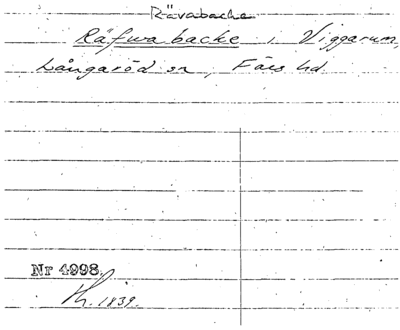 Rävabacke
Räfwa backe i Viggarum,
Långaröd sn, Färs hd
Nr 4998.
1839.